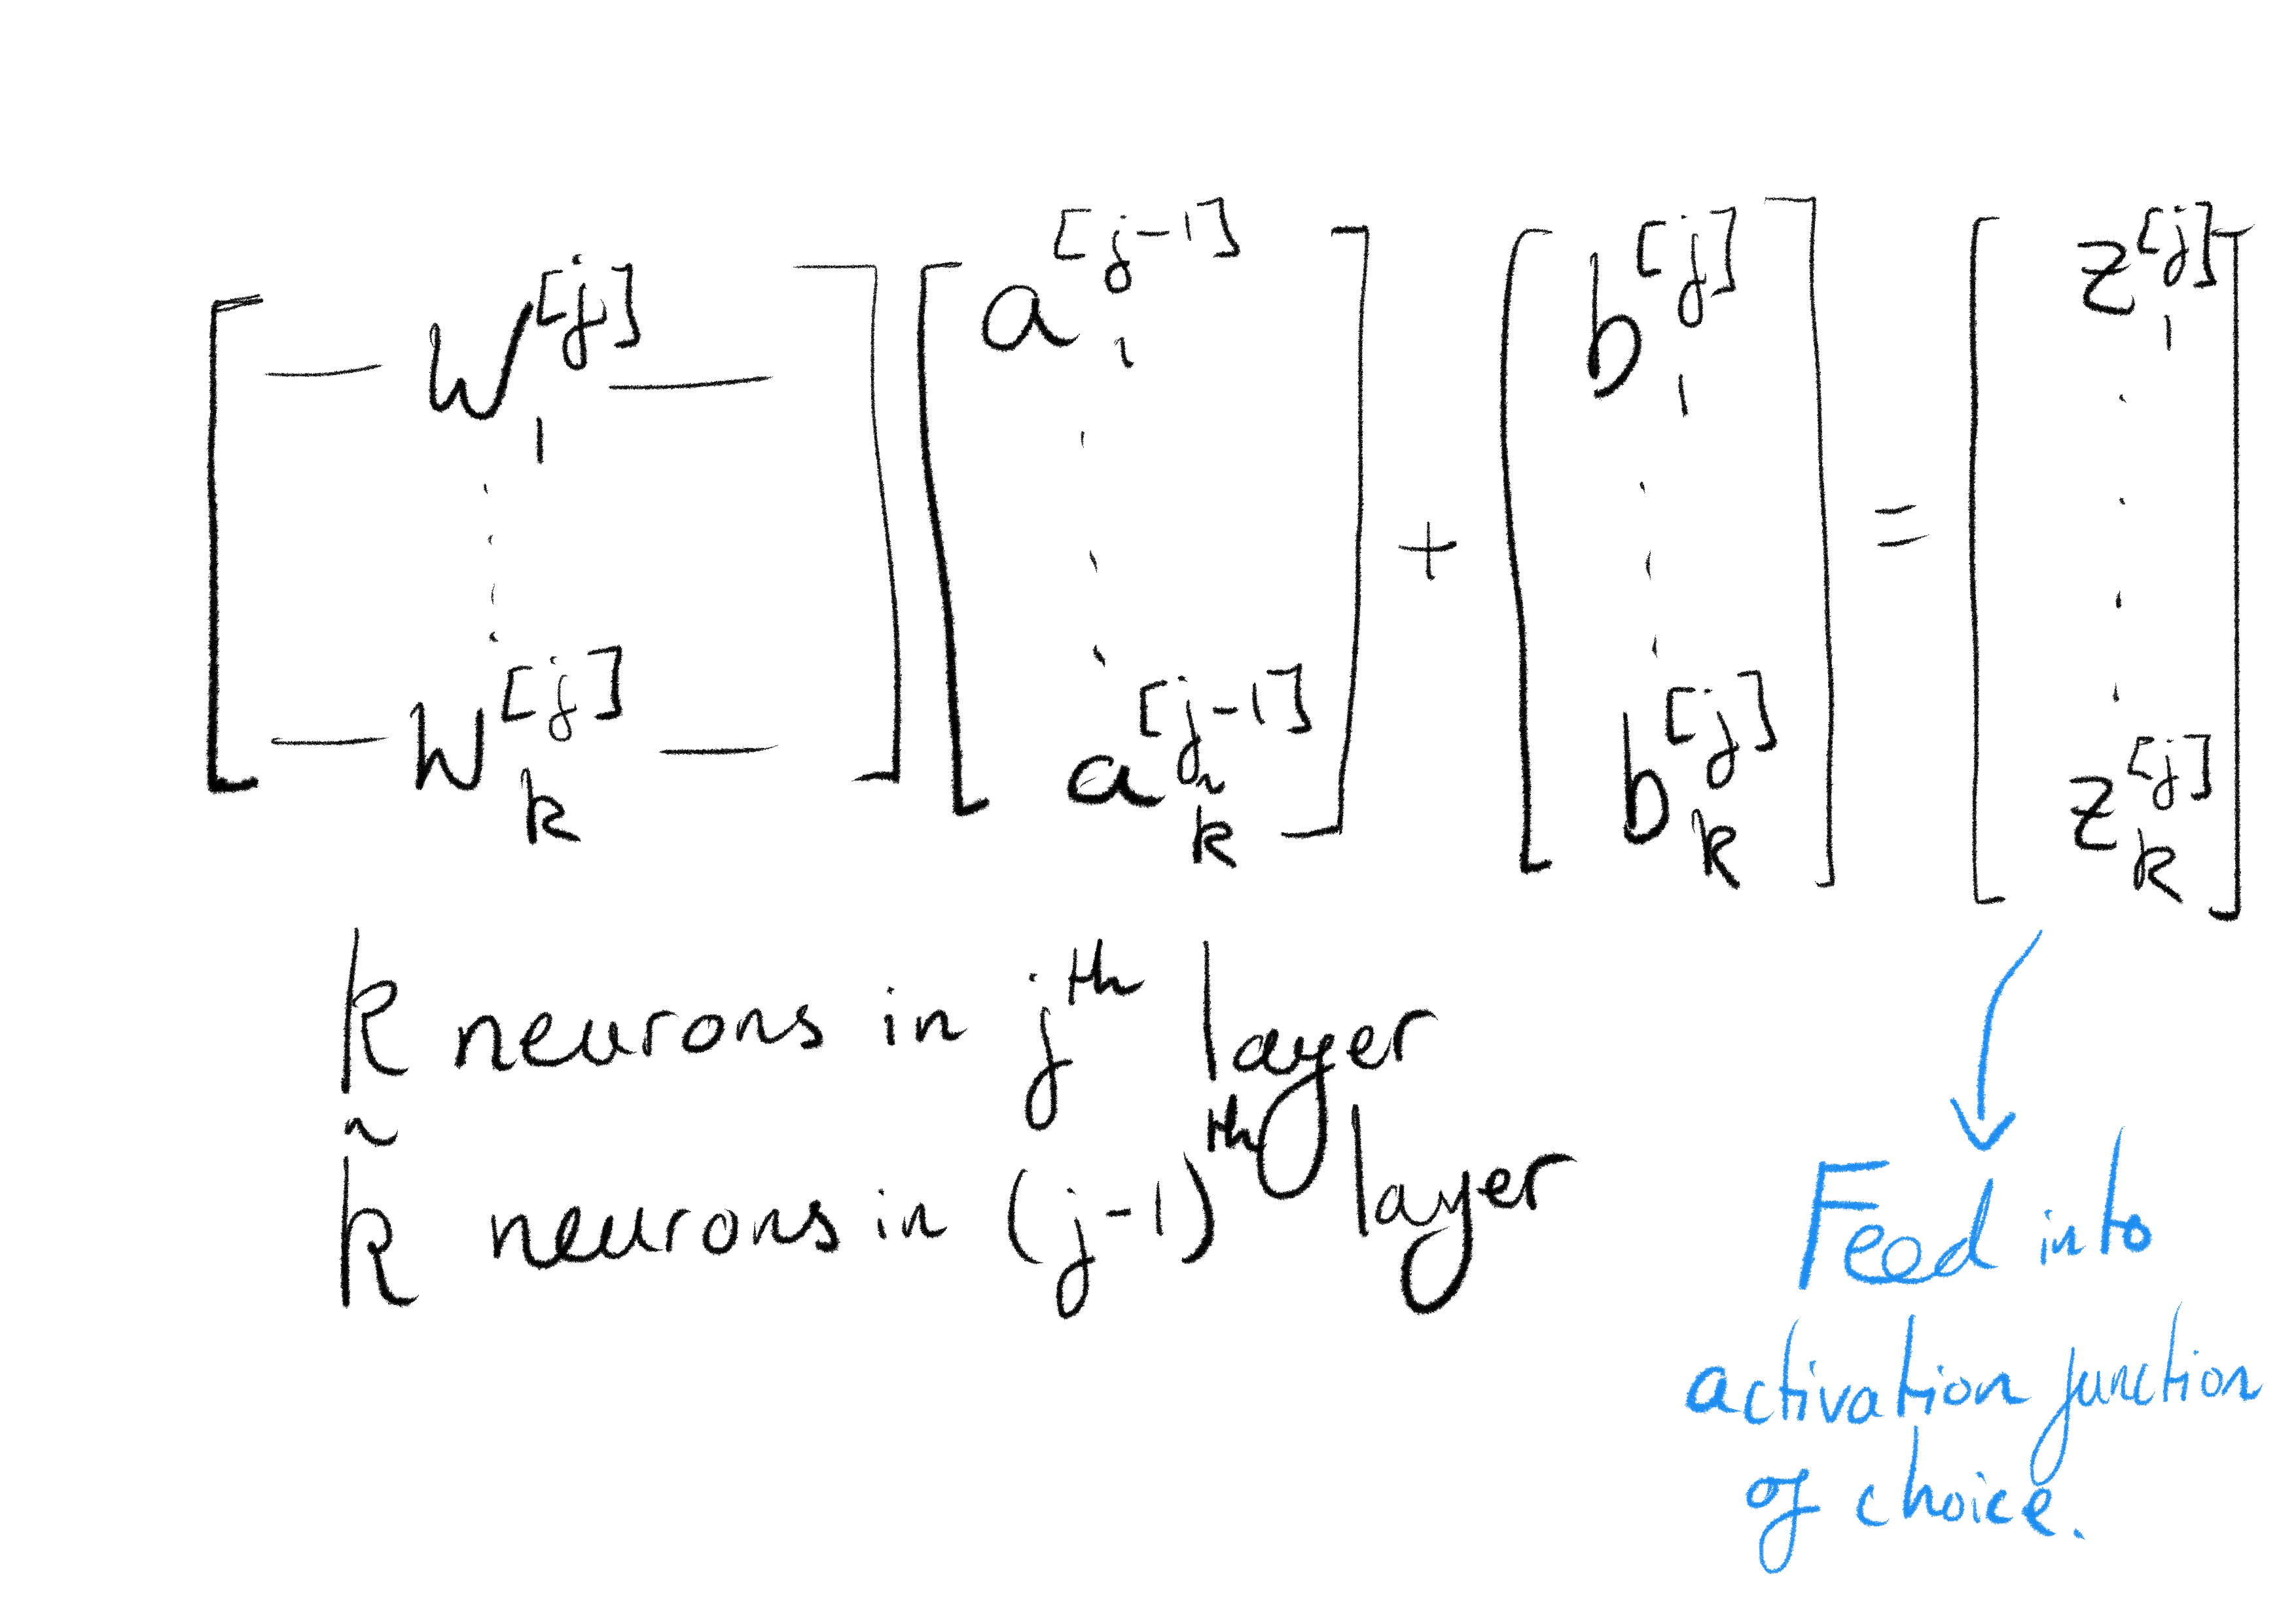 [ — w₁^[j] — ⋮ — w_k^[j] — ] [ a₁^[j-1] ⋮ a_k̃^[j-1] ] + [ b₁^[j] ⋮ b_k^[j] ] = [ z₁^[j] ⋮ z_k^[j] ]
k neurons in j^th layer
k̃ neurons in (j-1)^th layer
Feed into
activation function
of choice.